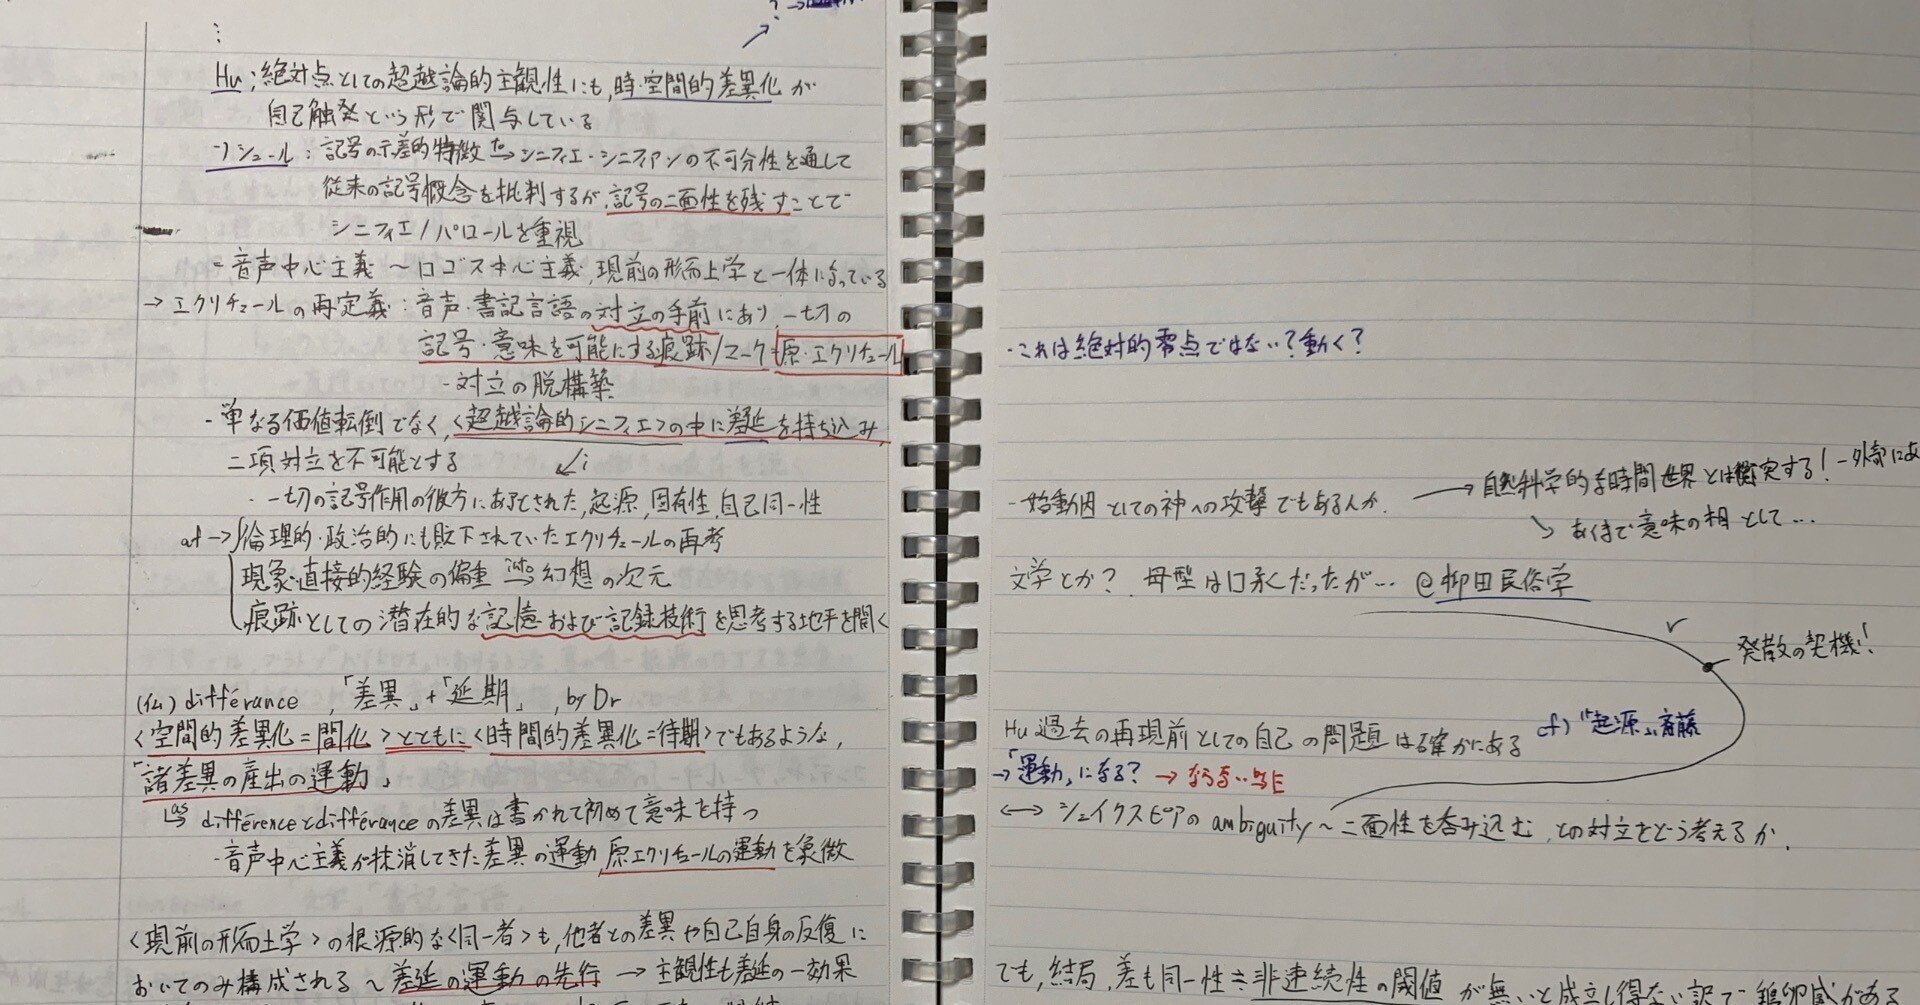 Hu：絶対点としての超越論的主観性にも,時・空間的差異化が
自己触発という形で関与している
ソシュール：記号の示差的特徴→シニフィエ・シニフィアンの不可分性を通して
従来の記号概念を批判するが,記号の二面性を残すことで
シニフィエ/パロールを重視
=音声中心主義〜ロゴス中心主義,現前の形而上学と一体になっている
→エクリチュールの再定義：音声・書記言語の対立の手前にあり,一切の
記号・意味を可能にする痕跡/マーク=原・エクリチュール
-対立の脱構築
・単なる価値転倒でなく,<超越論的シニフィエ>の中に差延を持ち込み,
二項対立を不可能とする
・一切の記号作用の彼方にあるとされた,起源,固有性,自己同一性
→倫理的・政治的にも貶下されていたエクリチュールの再考
現象・直接的経験の偏重 into→ 幻想の次元
痕跡としての潜在的な記憶および記録技術を思考する地平を開く
(仏) différance ,「差異」+「延期」, by Dr
<空間的差異化=間化>とともに<時間的差異化=待期>でもあるような,
「諸差異の産出の運動」
as différenceとdifféranceの差異は書かれて初めて意味を持つ
・音声中心主義が抹消してきた差異の運動,原エクリチュールの運動を象徴
<現前の形而上学>の根源的な<同一者>も,他者との差異や自己自身の反復に
おいてのみ構成される〜差延の運動の先行→主観性も差延の一効果
・これは絶対的零点ではない?動く?
-始動因としての神への攻撃でもあるんか.
→自然科学的な時間世界とは衝突する!
あくまで意味の相として…
文学とか? 母型は口承だったが… @柳田民俗学
発散の契機!
Hu 過去の再現前としての自己の問題は確かにある
cf)『起源』,斎藤
→「運動」になる?→ならない
⟷ シェイクスピアの ambiguity〜二面性を呑み込む,との対立をどう考えるか.
でも,結局,差も同一性≒非連続性の閾値が無いと成立し得ない訳で 鶏卵感がある